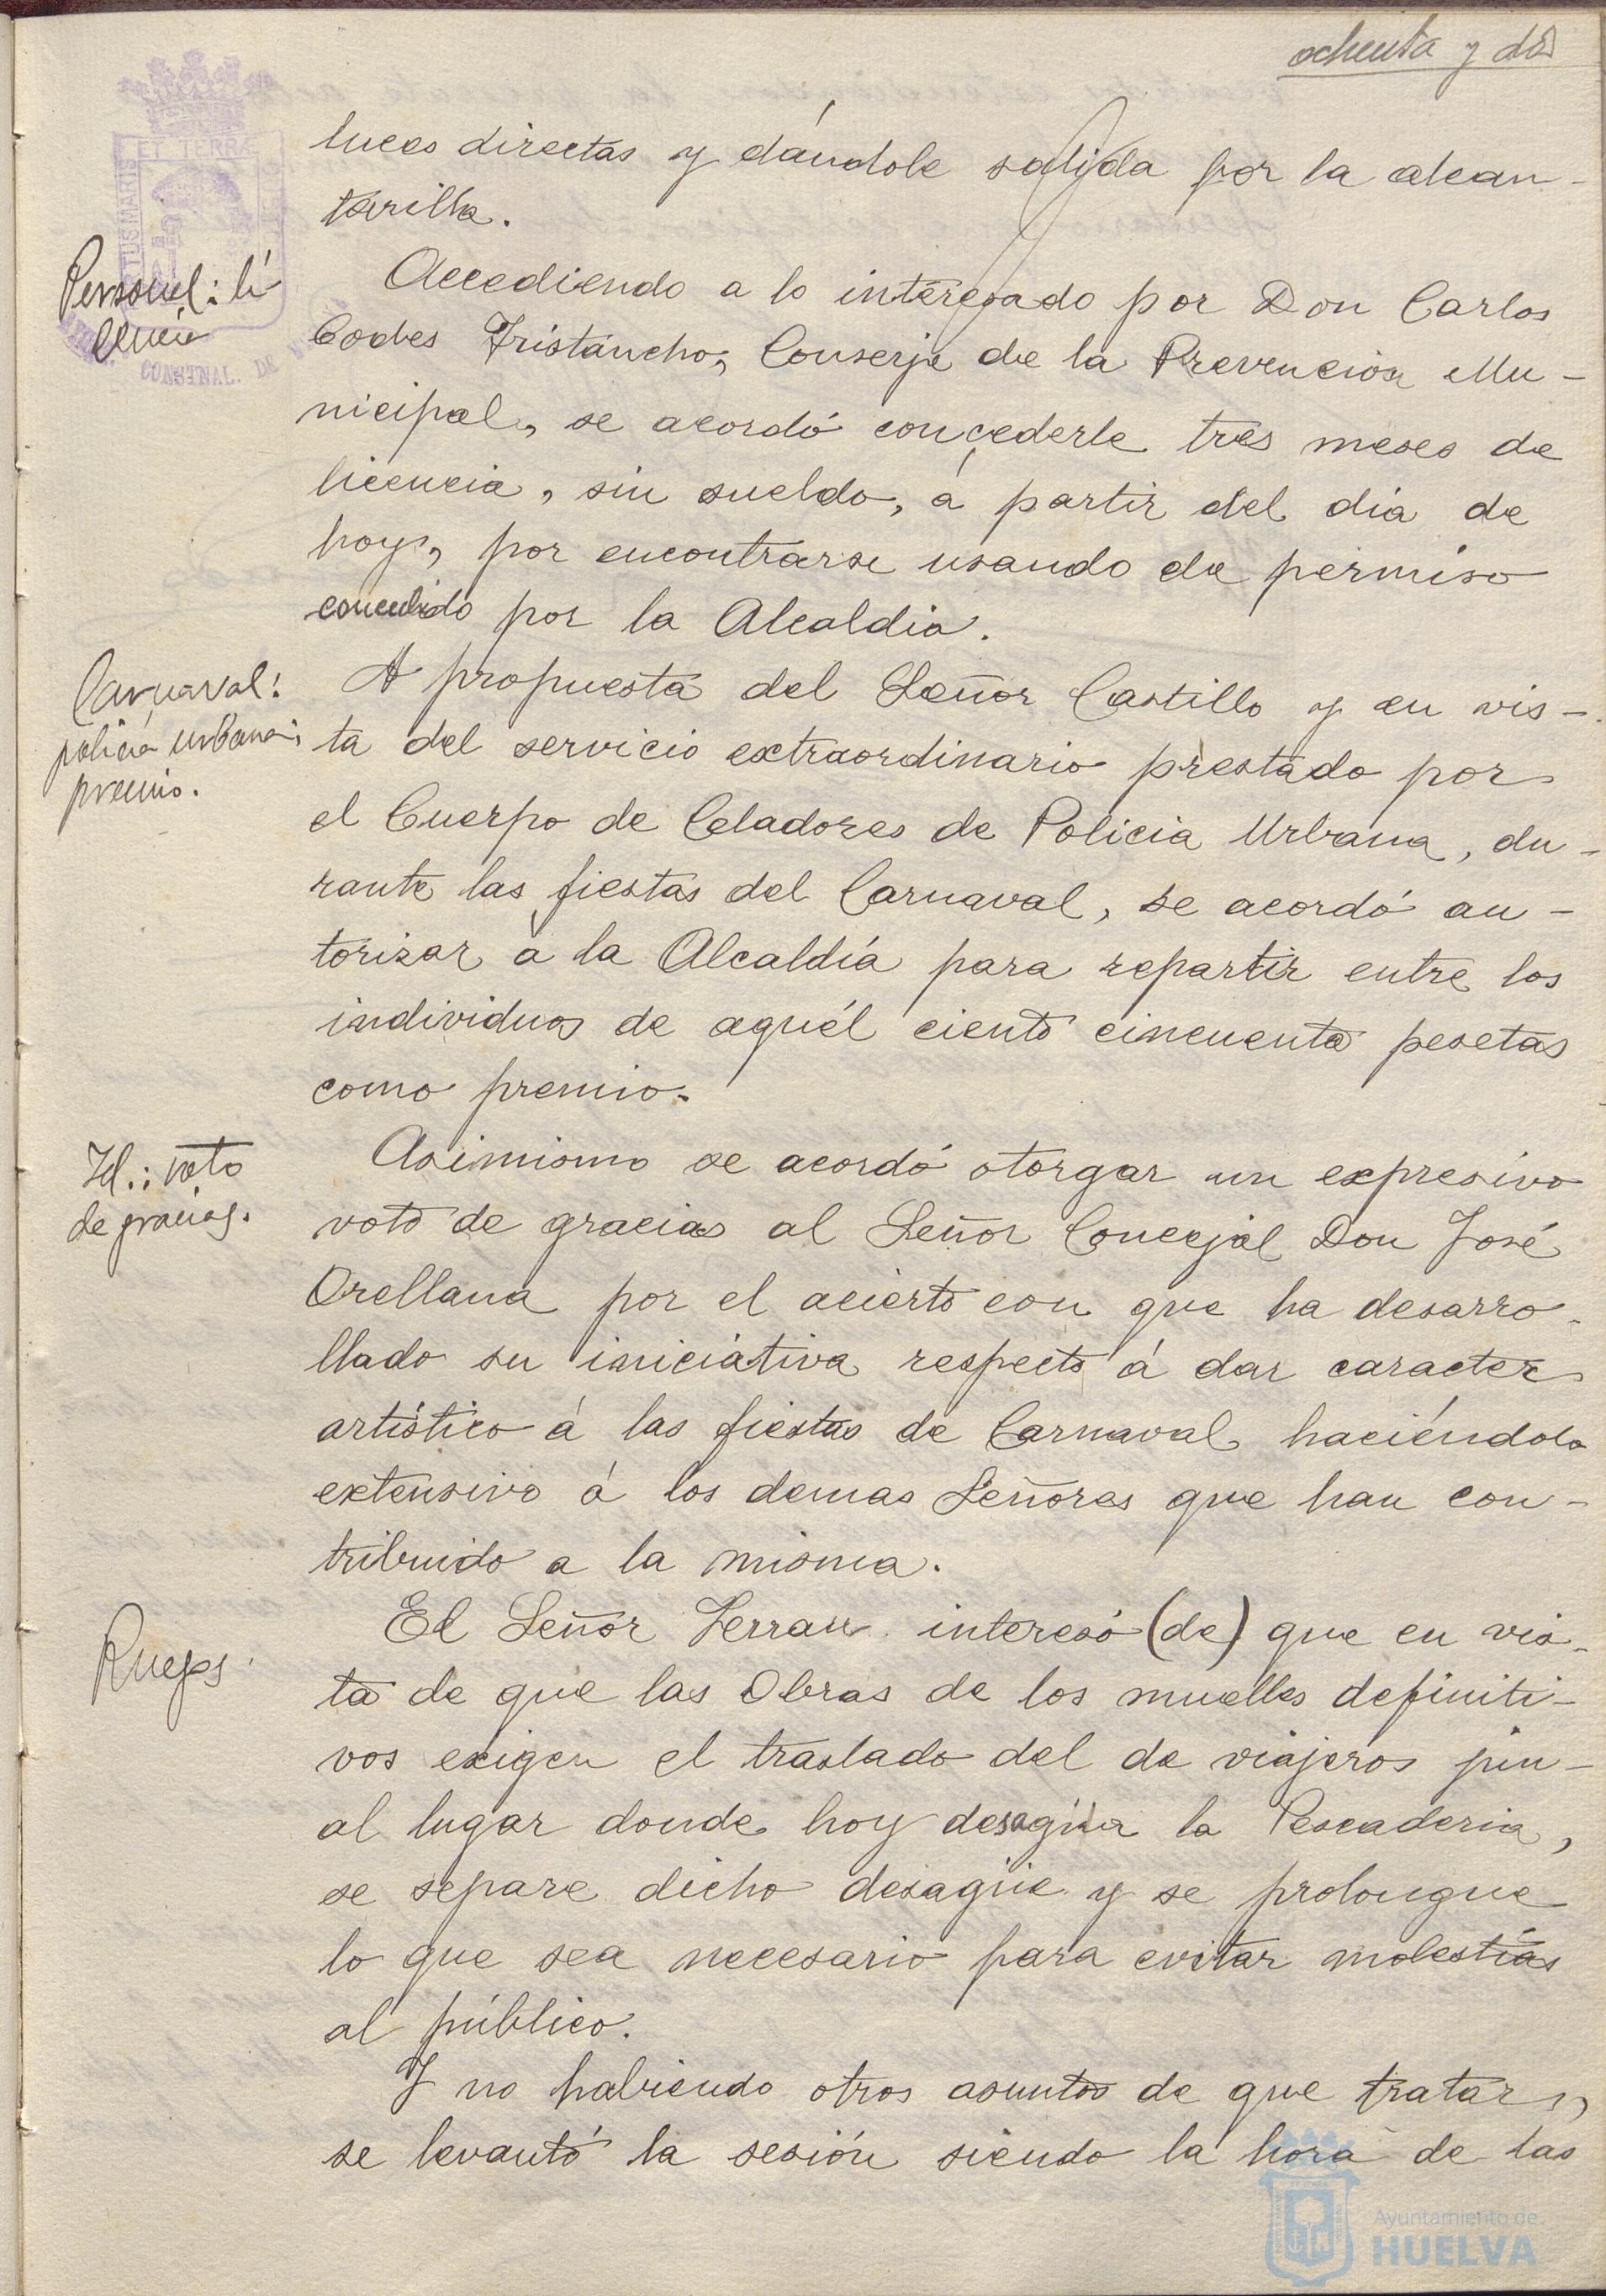 ochenta y dos
luces directas y dándole salida por la alcan-
tarilla.
Personal: li
cencia
Accediendo a lo interesado por Don Carlos
Codes Tristancho, Conserje de la Prevencion Mu-
nicipal, se acordó concederle tres meses de
licencia, sin sueldo, á partir del dia de
hoy, por encontrarse usando de permiso
concedido por la Alcaldia.
Carnaval:
policia urbana;
premio.
A propuesta del Señor Castillo y en vis-
ta del servicio extraordinario prestado por
el Cuerpo de Celadores de Policia Urbana, du-
rante las fiestas del Carnaval, se acordó au-
torizar a la Alcaldía para repartir entre los
individuos de aquél ciento cincuenta pesetas
como premio.
Id.: voto
de gracias.
Asimismo se acordó otorgar un expresivo
voto de gracias al Señor Concejal Don José
Orellana por el acierto con que ha desarro-
llado su iniciativa respecto á dar caracter
artístico á las fiestas de Carnaval haciéndolo
extensivo á los demas Señores que han con-
tribuido a la misma.
Ruegos
El Señor Terran interesó (de) que en vis-
ta de que las Obras de los muelles definiti-
vos exigen el traslado del de viajeros jun-
al lugar donde hoy desagua la Pescaderia,
se separe dicho desagüe y se prolongue
lo que sea necesario para evitar molestias
al público.
Y no habiendo otros asuntos de que tratar,
se levantó la sesión siendo la hora de las
ET TERRÆ
Ayuntamiento de
HUELVA